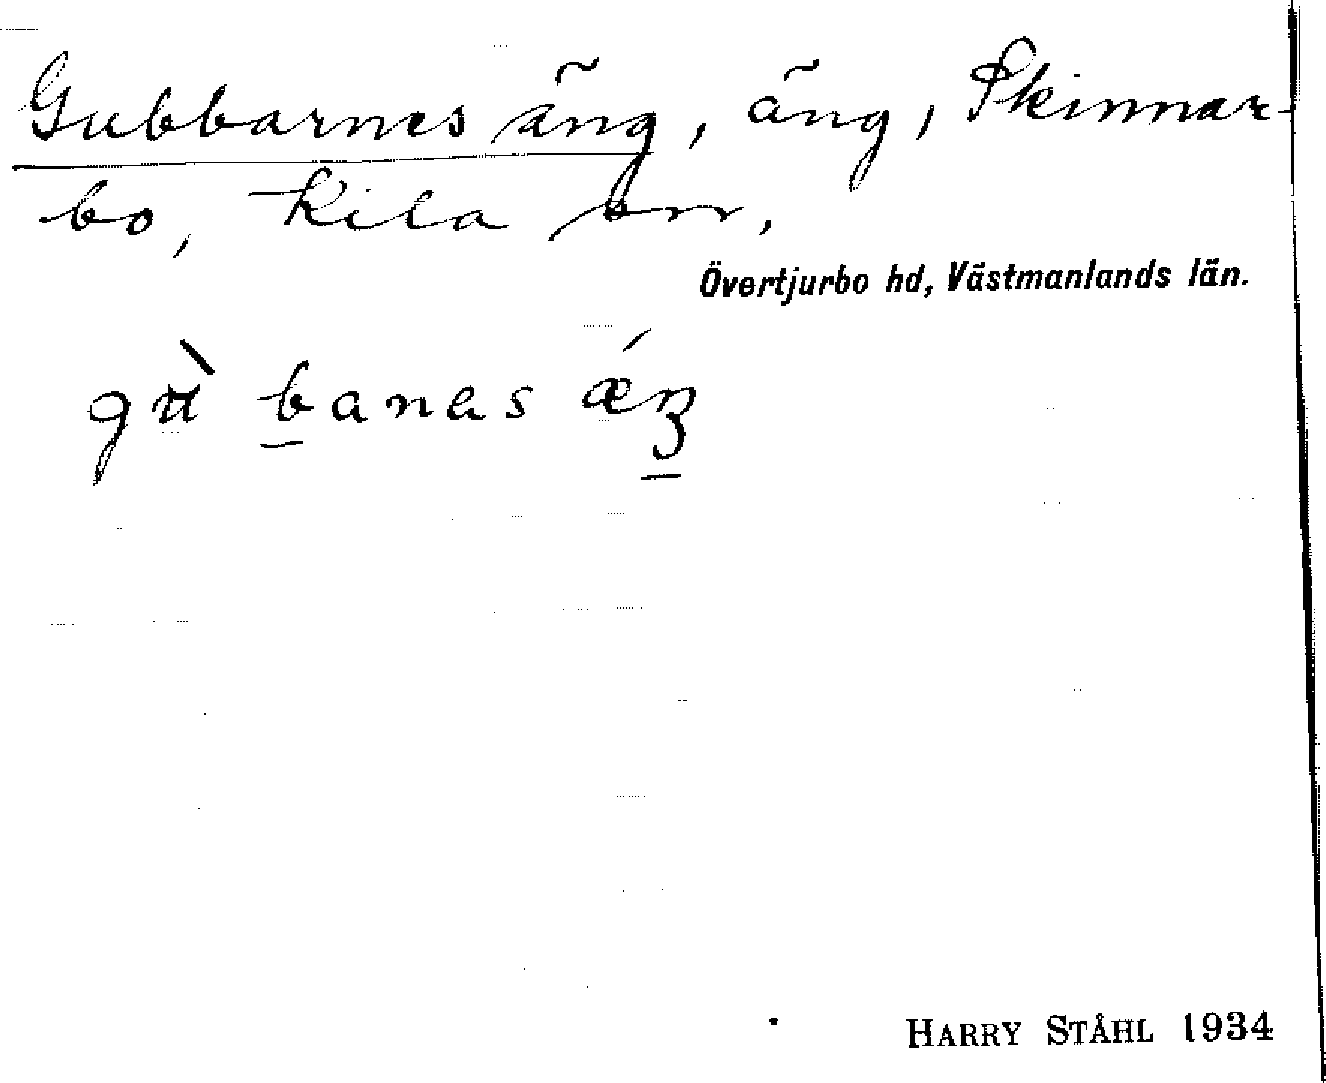 Gubbarnes äng, äng, Skinnar-
bo, Kila sn,
Övertjurbo hd, Västmanlands län.
gù banas ǽŋ
HARRY STÅHL 1934